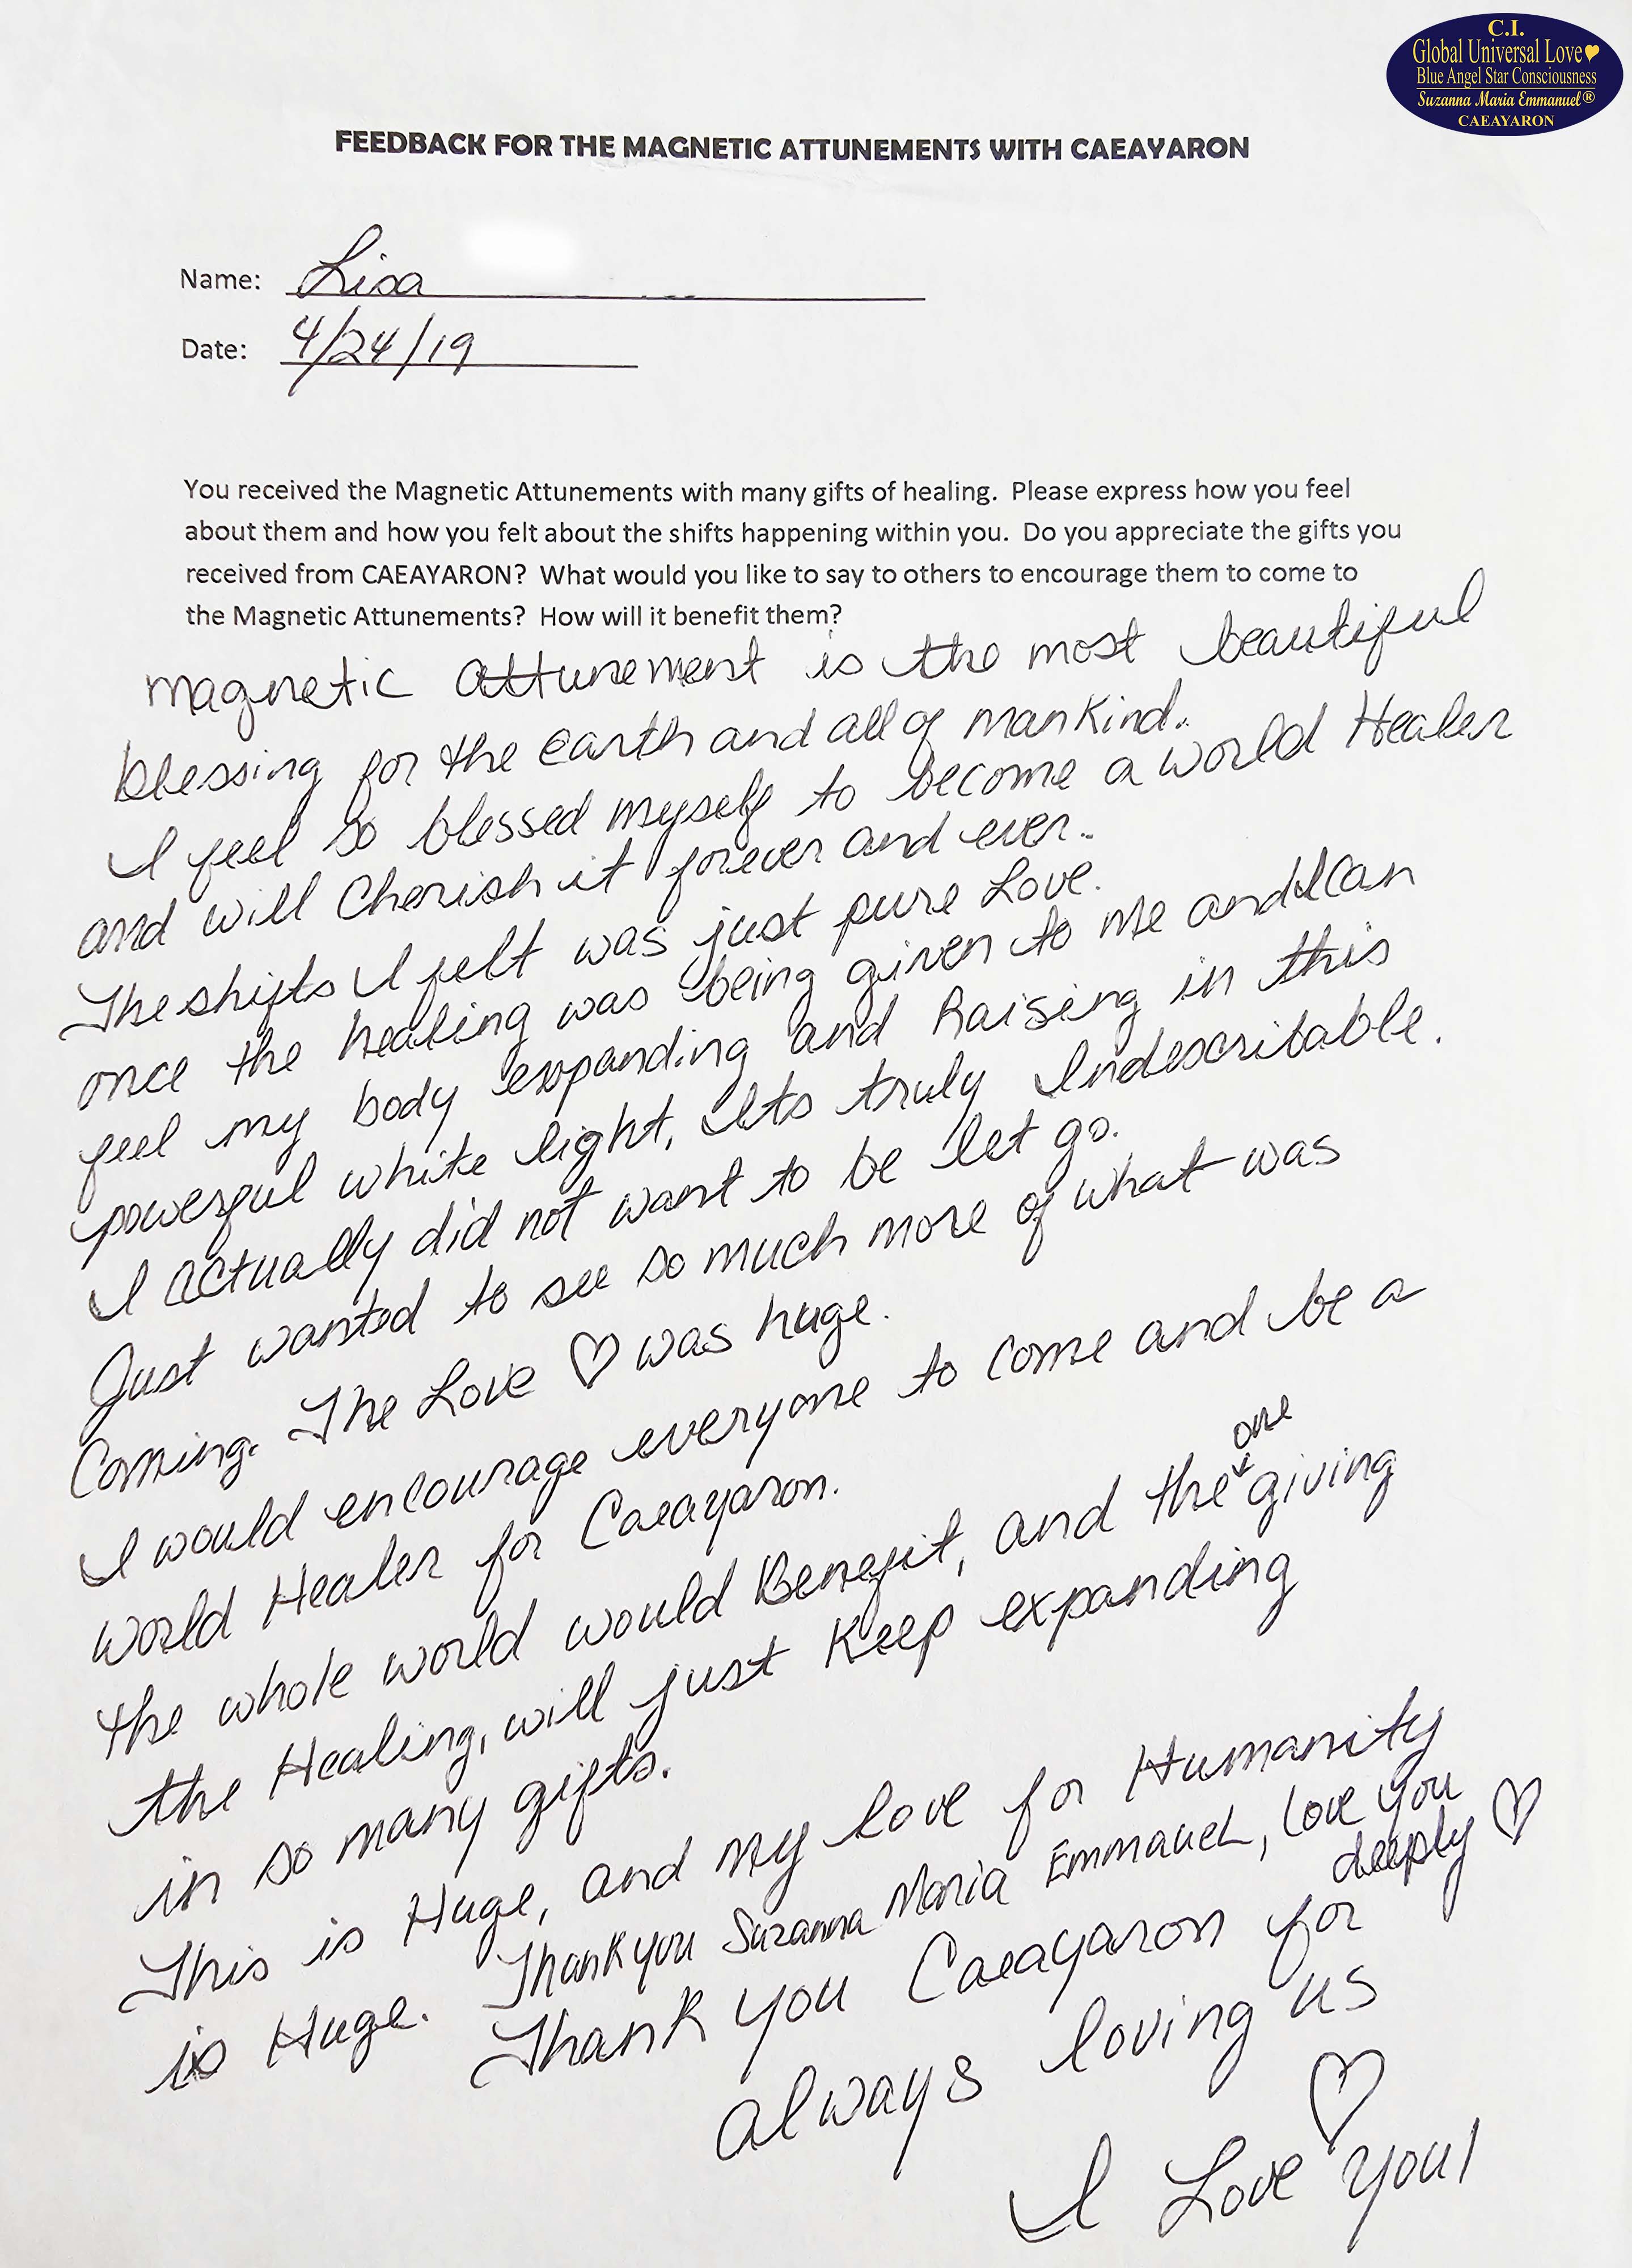 C.I.
Global Universal Love
Blue Angel Star Consciousness
Suzanna Maria Emmanuel®
CAEAYARON
FEEDBACK FOR THE MAGNETIC ATTUNEMENTS WITH CAEAYARON
Name: Lisa
Date: 4/24/19
You received the Magnetic Attunements with many gifts of healing. Please express how you feel
about them and how you felt about the shifts happening within you. Do you appreciate the gifts you
received from CAEAYARON? What would you like to say to others to encourage them to come to
the Magnetic Attunements? How will it benefit them?
magnetic attunement is the most beautiful
blessing for the earth and all of mankind..
I feel so blessed myself to become a world Healer
and will Cherish it forever and ever..
The shifts I felt was just pure Love.
once the healing was being given to me and I can
feel my body expanding and Raising in this
powerful white light, Its truly Indescribable.
I actually did not want to be let go.
Just wanted to see so much more of what was
Coming. The Love ♡ was huge.
I would encourage everyone to come and be a
World Healer for Caeayaron.
one
the whole world would Benefit, and the giving
the Healing, will just Keep expanding
in so many gifts.
This is Huge, and my love for Humanity
is Huge. Thank you Suzanna Maria Emmanuel, love you
deeply ♡
Thank you Caeayaron for
always loving us
♡
I Love you!